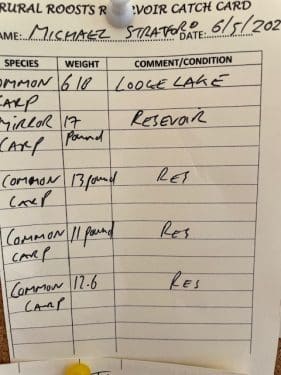 RURAL ROOSTS R VOIR CATCH CARD
AME: MICHAEL STRATFORD DATE: 6/5/202
SPECIES WEIGHT COMMENT/CONDITION
OMMON 6 10 LODGE LAKE
CARP
MIRROR 17 RESEVOIR
CARP Pound
COMMON 13 pound RES
CARP
COMMON 11 pound RES
CARP
COMMON 12.6 RES
CARP